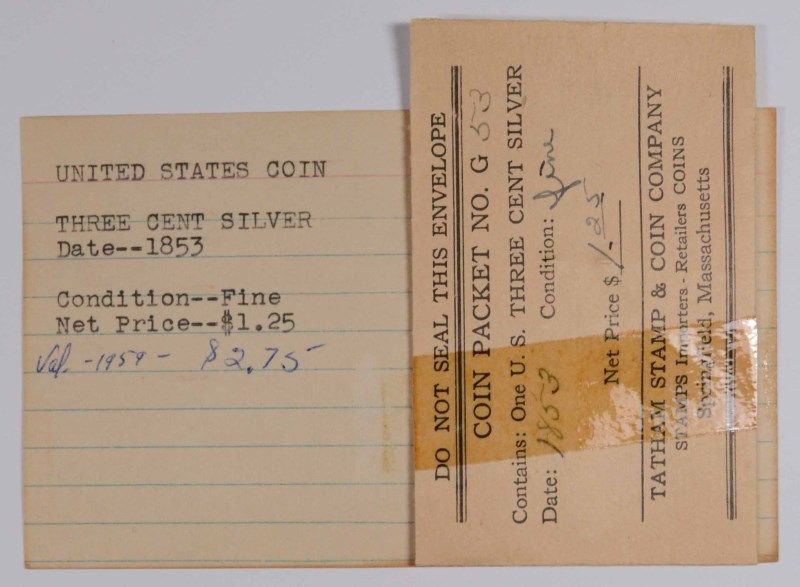 UNITED STATES COIN
THREE CENT SILVER
Date--1853
Condition--Fine
Net Price--$1.25
Val. -1959- $2.75
DO NOT SEAL THIS ENVELOPE
COIN PACKET NO. G 53
Contains: One U. S. THREE CENT SILVER
Date: 1853 Condition: fine
Net Price $ 1.25
TATHAM STAMP & COIN COMPANY
STAMPS Importers - Retailers COINS
Springfield, Massachusetts